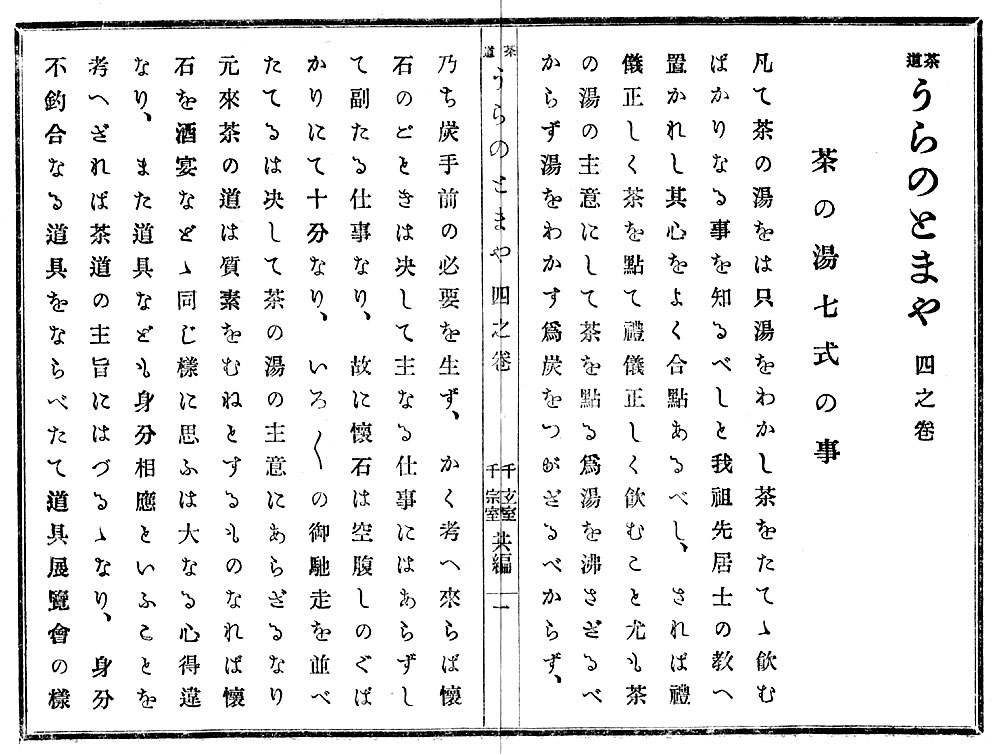 茶道 うらのとまや 四之卷
茶の湯七式の事
凡て茶の湯をは只湯をわかし茶をたてゝ飮む
ばかりなる事を知るべしと我祖先居士の敎へ
置かれし其心をよく合點あるべし、されば禮
儀正しく茶を點て禮儀正しく飮むこと尤も茶
の湯の主意にして茶を點る爲湯を沸さざるべ
からず湯をわかす爲炭をつがざるべからず、
茶道 うらのとまや 四之卷 千玄室 千宗室 共編 一
乃ち炭手前の必要を生ず、かく考へ來らば懷
石のごときは决して主なる仕事にはあらずし
て副たる仕事なり、故に懷石は空腹しのぐば
かりにて十分なり、いろ〱の御馳走を並べ
たてるは决して茶の湯の主意にあらざるなり
元來茶の道は質素をむねとするものなれば懷
石を酒宴などゝ同じ樣に思ふは大なる心得違
なり、また道具なども身分相應といふことを
考へざれば茶道の主旨にはづるゝなり、身分
不釣合なる道具をならべたて道具展覽會の樣